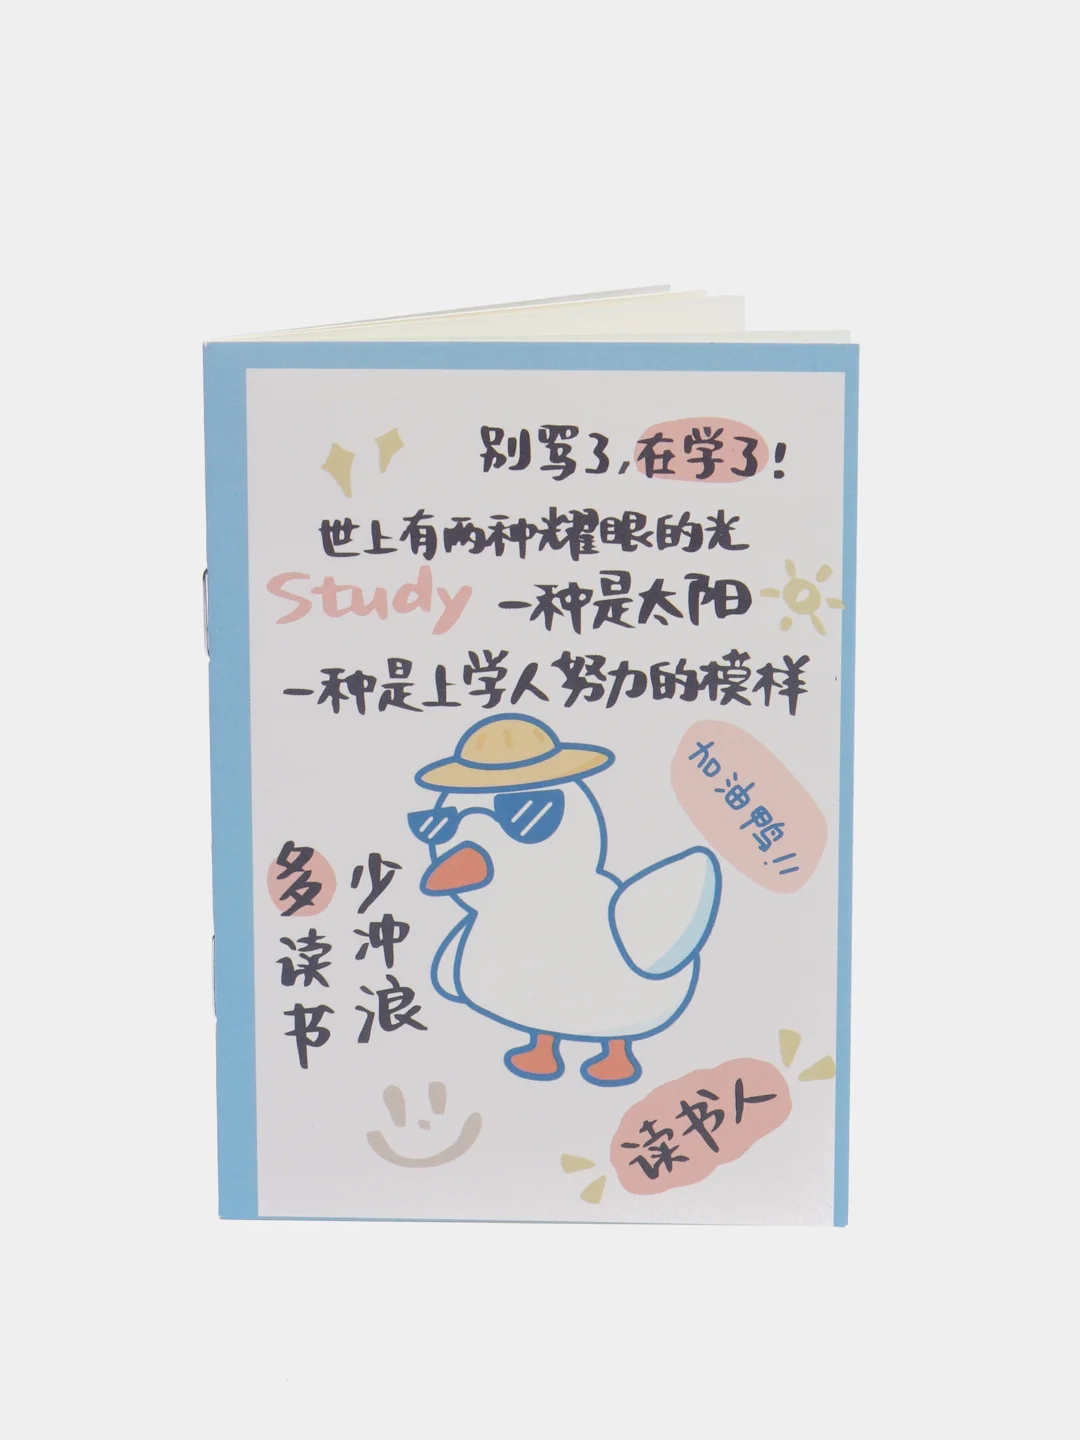 别骂了,在学了!
世上有两种耀眼的光
Study 一种是太阳
一种是上学人努力的模样
加油鸭!!
多读书
少冲浪
读书人